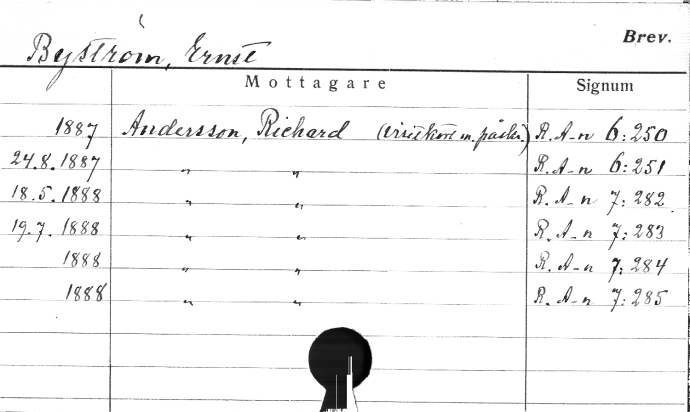 Brev.
Byström, Ernst
Mottagare Signum
1887 Andersson, Richard (visitkort m. påskr.) R. A-n 6:250
24.8.1887 " " R. A-n 6:251
18.5.1888 " " R. A-n 7:282
19.7.1888 " " R. A-n 7:283
1888 " " R. A-n 7:284
1888 " " R. A-n 7:285